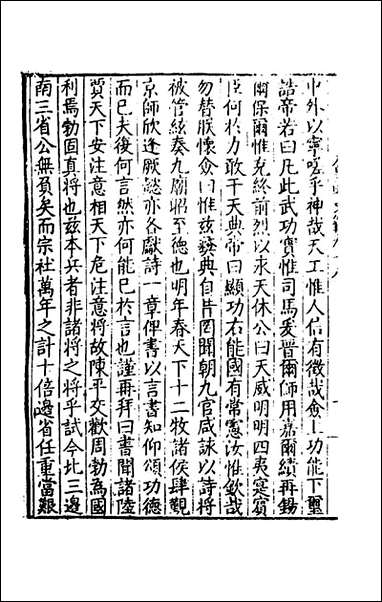 中外以寧嗟乎神哉天工惟人信有徵哉僉上功能下璽
誥帝若曰凡此武功實惟司馬爰晉爾師用嘉爾績再錫
爾保爾惟克終前烈以永天休公曰天威明明四夷寔賓
臣何於力敢干天典帝曰顯功右能國有常憲汝惟欽哉
勿替朕懷僉曰惟茲發典自昔罔聞朝九官咸詠以詩將
被管絃奏九廟昭至德也明年春天下十二牧諸侯肆覲
京師欣逢厥懿亦各獻詩一章俾書以言書知仰頌功德
而已夫後何言然亦何能已於言也謹再拜曰書聞諸陸
賈天下安注意相天下危注意將故陳平交歡周勃為國
利焉勃固真將也茲本兵者非諸將之將乎試今比三邊
南三省公無負矣而宗社萬年之計十倍邊省任重當艱